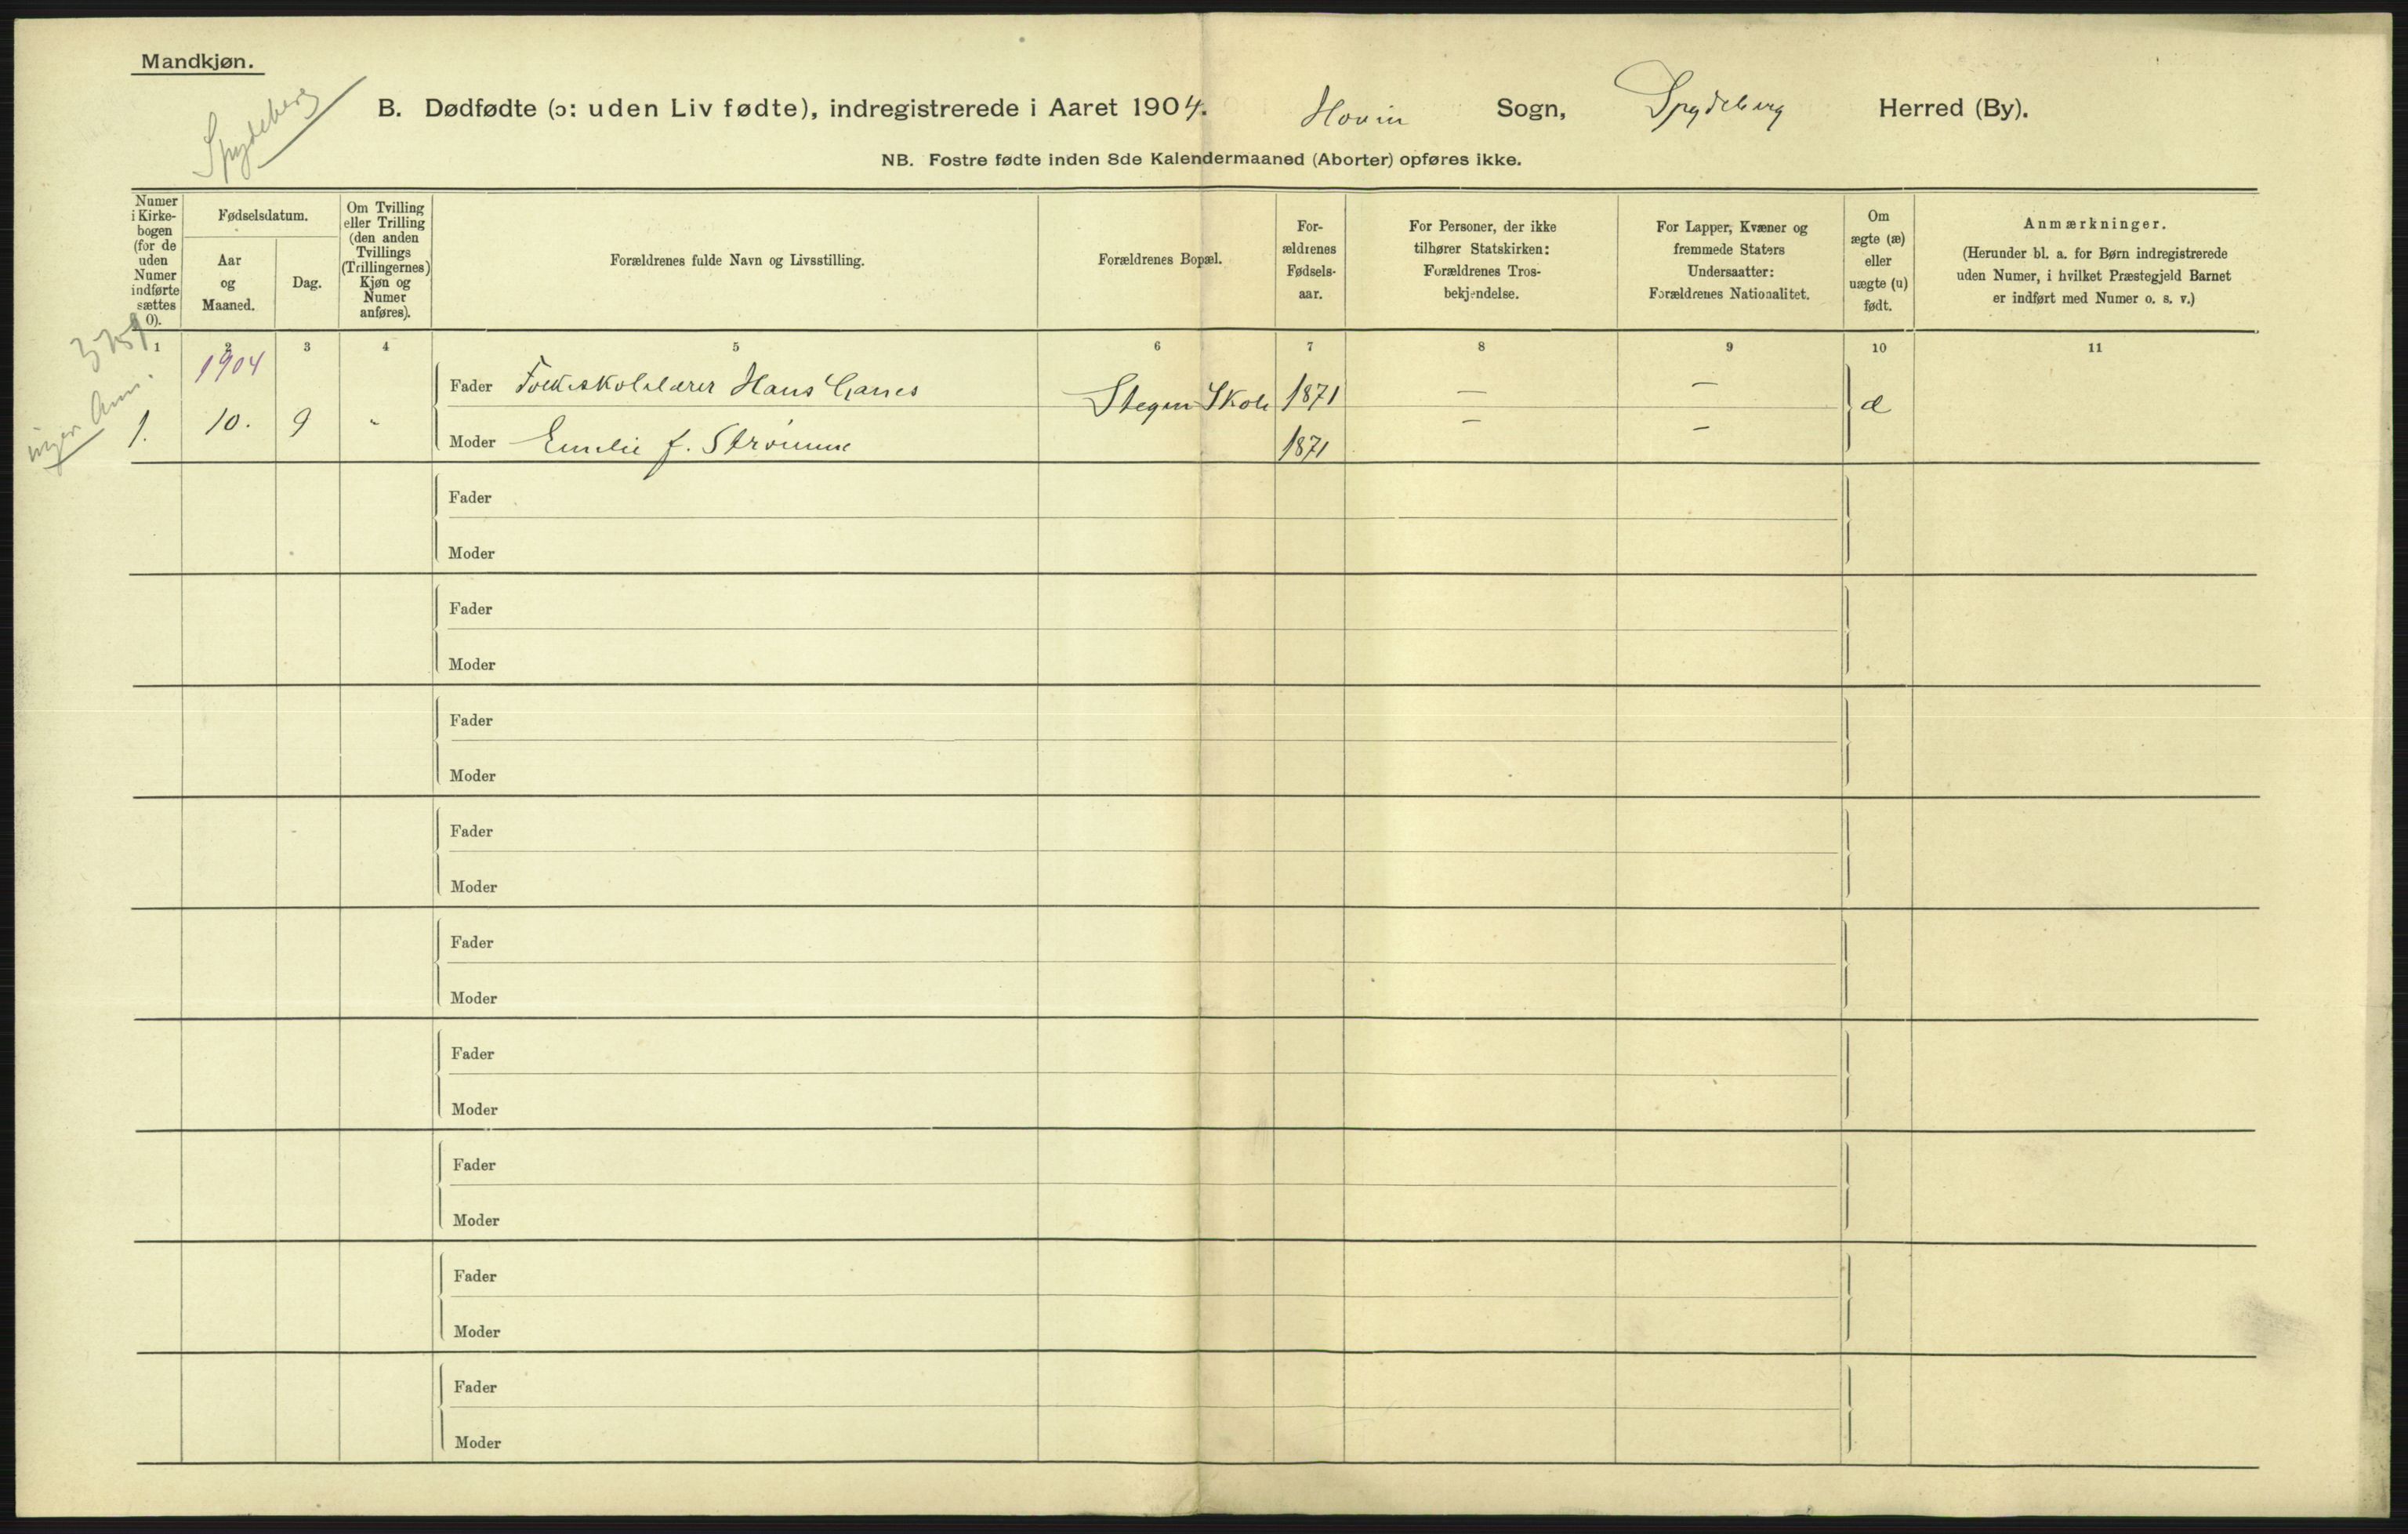 Mandkjøn.
Spydeberg
B. Dødfødte (ɔ: uden Liv fødte), indregistrerede i Aaret 1904. Hovin Sogn, Spydeberg Herred (By).
NB. Fostre fødte inden 8de Kalendermaaned (Aborter) opføres ikke.
Numer
i Kirke-
bogen
(for de
uden
Numer
indførte
sættes
0).
Fødselsdatum.
Aar
og
Maaned.
Dag.
Om Tvilling
eller Trilling
(den anden
Tvillings
(Trillingernes)
Kjøn og
Numer
anføres).
Forældrenes fulde Navn og Livsstilling.
Forældrenes Bopæl.
For-
ældrenes
Fødsels-
aar.
For Personer, der ikke
tilhører Statskirken:
Forældrenes Tros-
bekjendelse.
For Lapper, Kvæner og
fremmede Staters
Undersaatter:
Forældrenes Nationalitet.
Om
ægte (æ)
eller
uægte (u)
født.
Anmærkninger.
(Herunder bl. a. for Børn indregistrerede
uden Numer, i hvilket Præstegjeld Barnet
er indført med Numer o. s. v.)
1 2 3 4 5 6 7 8 9 10 11
1904
Fader Folkeskolelærer Hans Skole 1871 — —
1. 10. 9 " æ
Moder Emilie f. Strømme 1871 — —
Fader
Moder
Fader
Moder
Fader
Moder
Fader
Moder
Fader
Moder
Fader
Moder
Fader
Moder
Fader
Moder
Fader
Moder